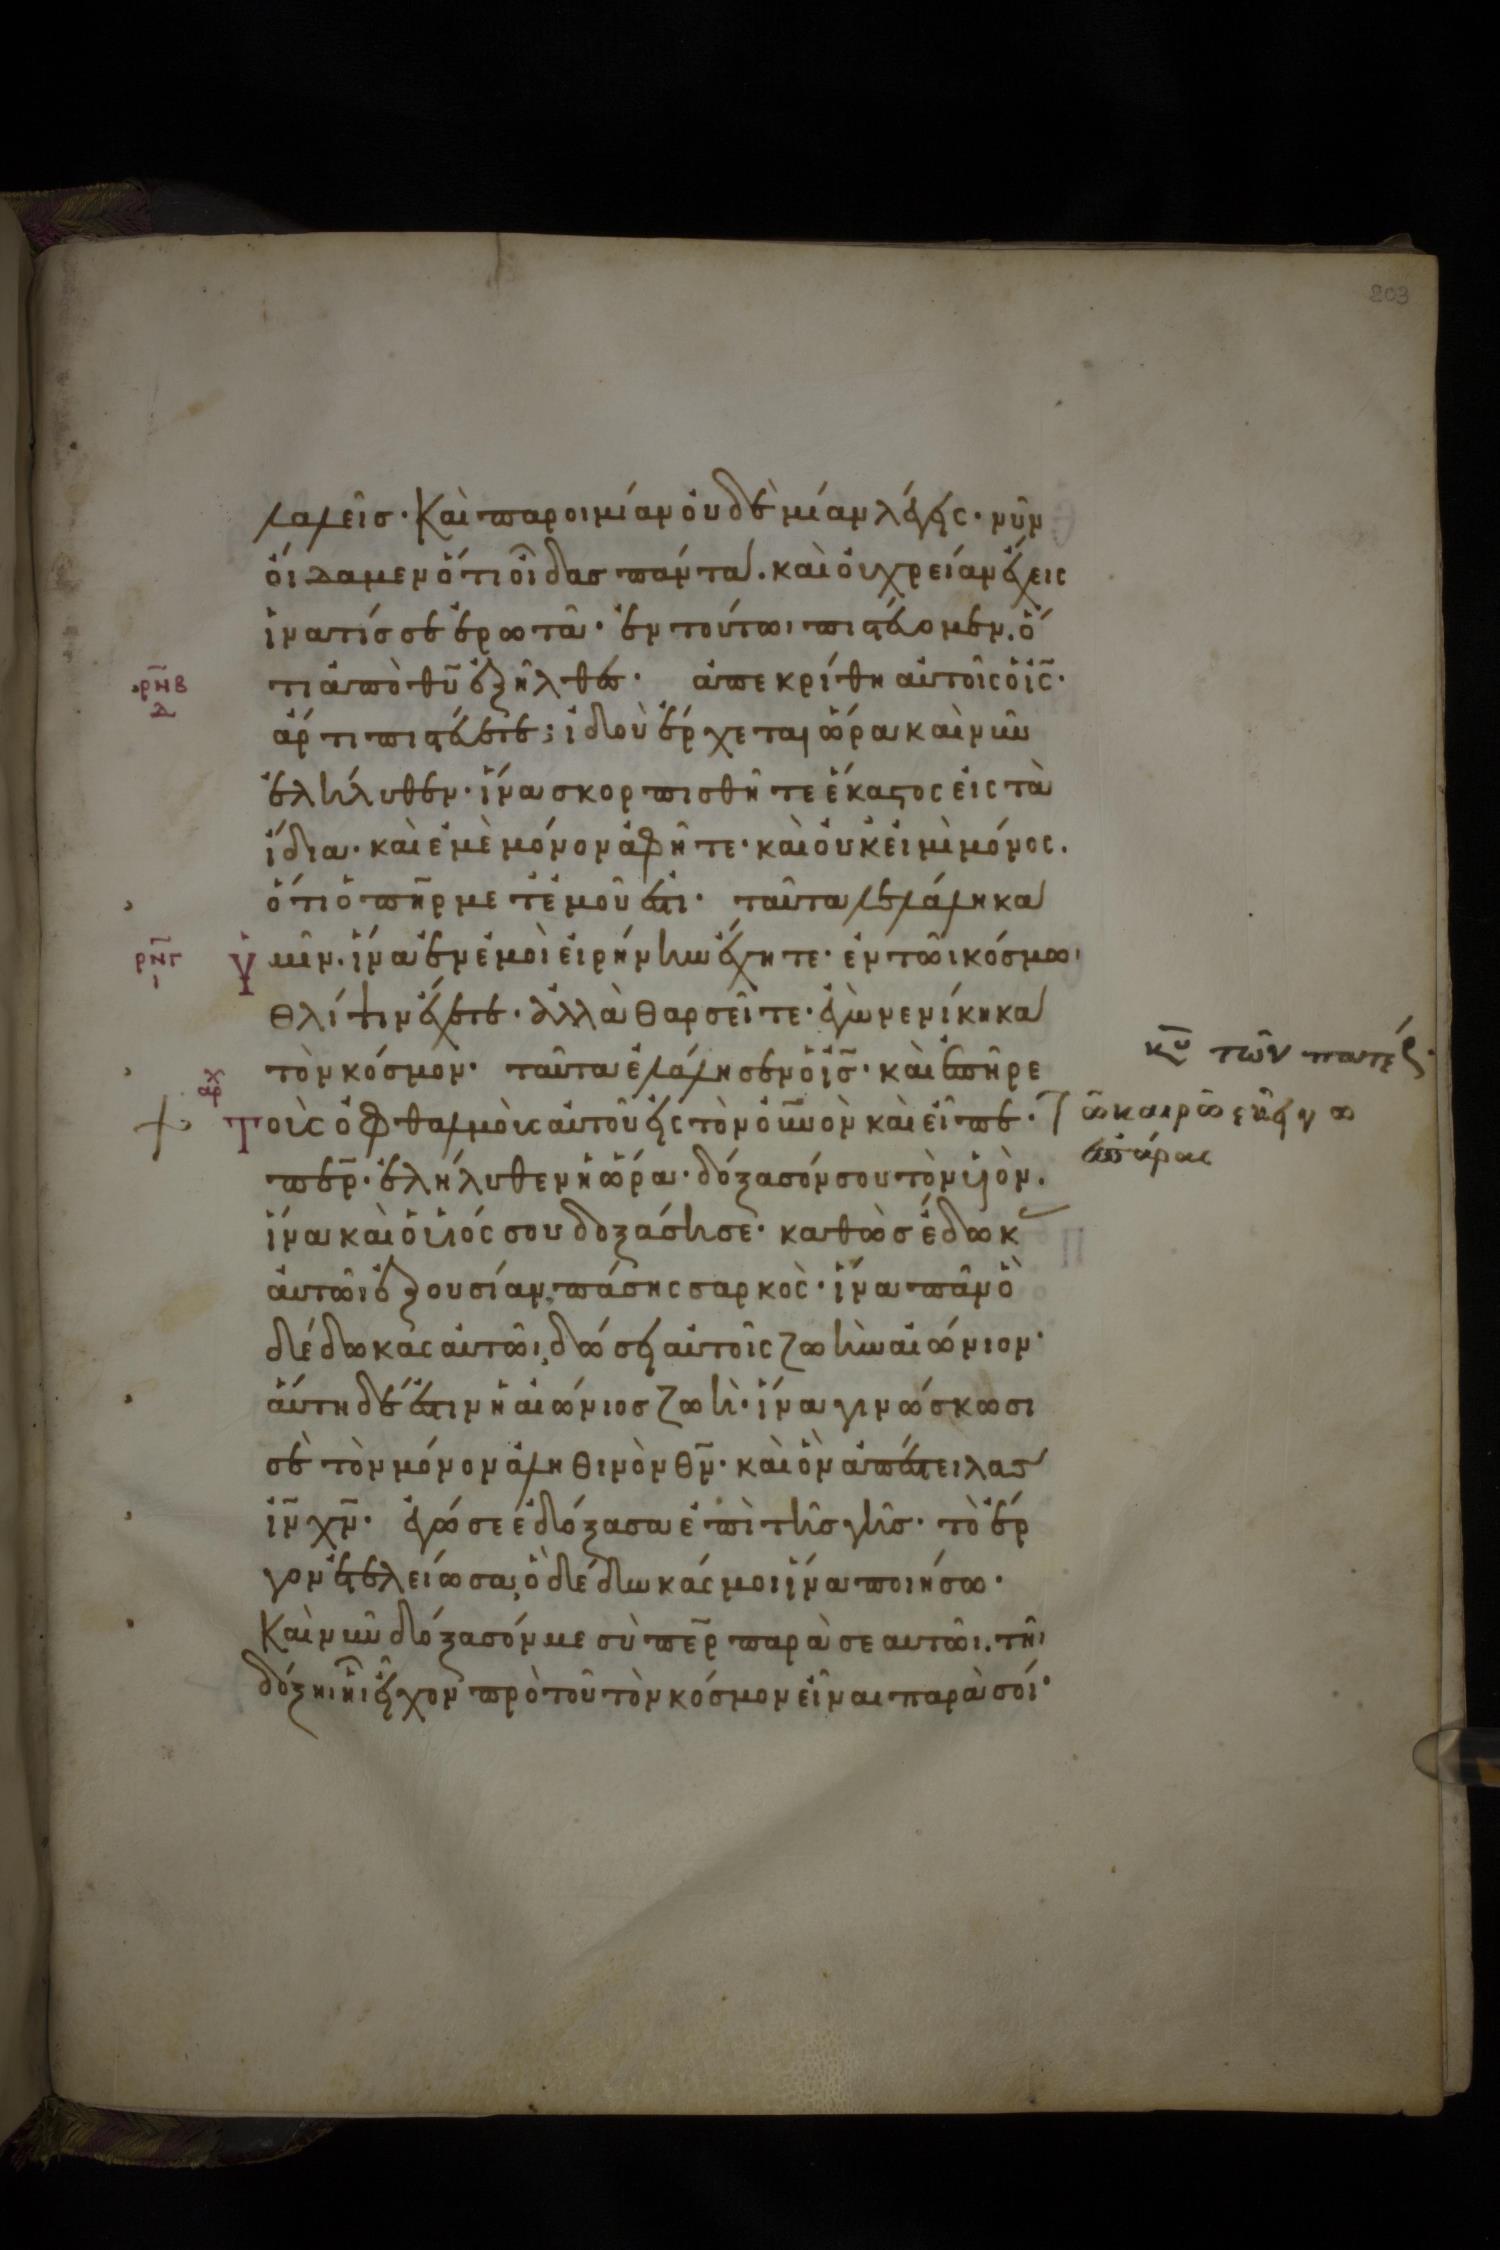 203
λαλεῖσ· Καὶ παροιμίαν οὐδὲ μίαν λέγεις· νῦν
οἴδαμεν ὅτι οἶδασ πάντα. καὶ οὐ χρείαν ἔχεις
ἵνα τίσ σε ἐρωτᾶ· ἐν τούτωι πιστεύομεν. ὅ
τι ἀπὸ θῡ ἐξῆλθεσ· ἀπεκρίθη αὐτοῖς ὁ ις̄·
ρ̄ν̄β
δ
ἄρτι πιστεύετε; ἰδοὺ ἔρχεται ὥρα καὶ νῦν
ἐλήλυθεν· ἵνα σκορπισθῆτε ἕκαστος εἰς τὰ
ἴδια· καὶ ἐμὲ μόνον ἀφῆτε· καὶ οὐκ εἰμὶ μόνος.
ὅτι ὁ πη̄ρ μετ ἐμοῦ ἐστι· ταῦτα λελάληκα
ρ̄ν̄γ
ι
Ὑμῖν. ἵνα ἐν ἐμοὶ εἰρήνην ἔχητε· ἐν τῶι κόσμωι
θλίψιν ἔχετε· ἀλλὰ θαρσεῖτε· ἐγὼ νενίκηκα
τὸν κόσμον· ταῦτα ἐλάλησεν ὁ ισ̄· καὶ ἐπῆρε
αρχ
Τοὺς ὀφθαλμοὺς αὐτοῦ εἰς τὸν οὐ̄νον καὶ εἶπε·
κῡ τῶν πατέρ·
τῶ καιρῶ ἐκείνω
ἐπάρας
πε̄ρ· ἐλήλυθεν ἡ ὥρα· δόξασόν σου τὸν υἱόν.
ἵνα καὶ ὁ υἱός σου δοξάσησε· καθὼσ ἔδωκ
αὐτῶι ἐξουσίαν, πάσης σαρκὸς· ἵνα πᾶν ὃ
δέδωκας αὐτῶι, δώσει αὐτοῖς ζωὴν αἰώνιον·
αὕτη δέ ἐστιν ἡ αἰώνιοσ ζωὴ· ἵνα γινώσκωσι
σὲ τὸν μόνον ἀληθινὸν θν̄· καὶ ὃν ἀπέστειλασ
ιν̄ χν̄· ἐγώ σε ἐδόξασα ἐπὶ τῆσ γῆσ· τὸ ἔρ
γον ἐτελείωσα, ὃ δέδωκάς μοι ἵνα ποιήσω·
Καὶ νῦν δόξασόν με σὺ πε̄ρ παρὰ σεαυτῶι. τῆι
δόξηι ἧι εἶχον πρὸ τοῦ τὸν κόσμον εἶναι παρὰ σοί·